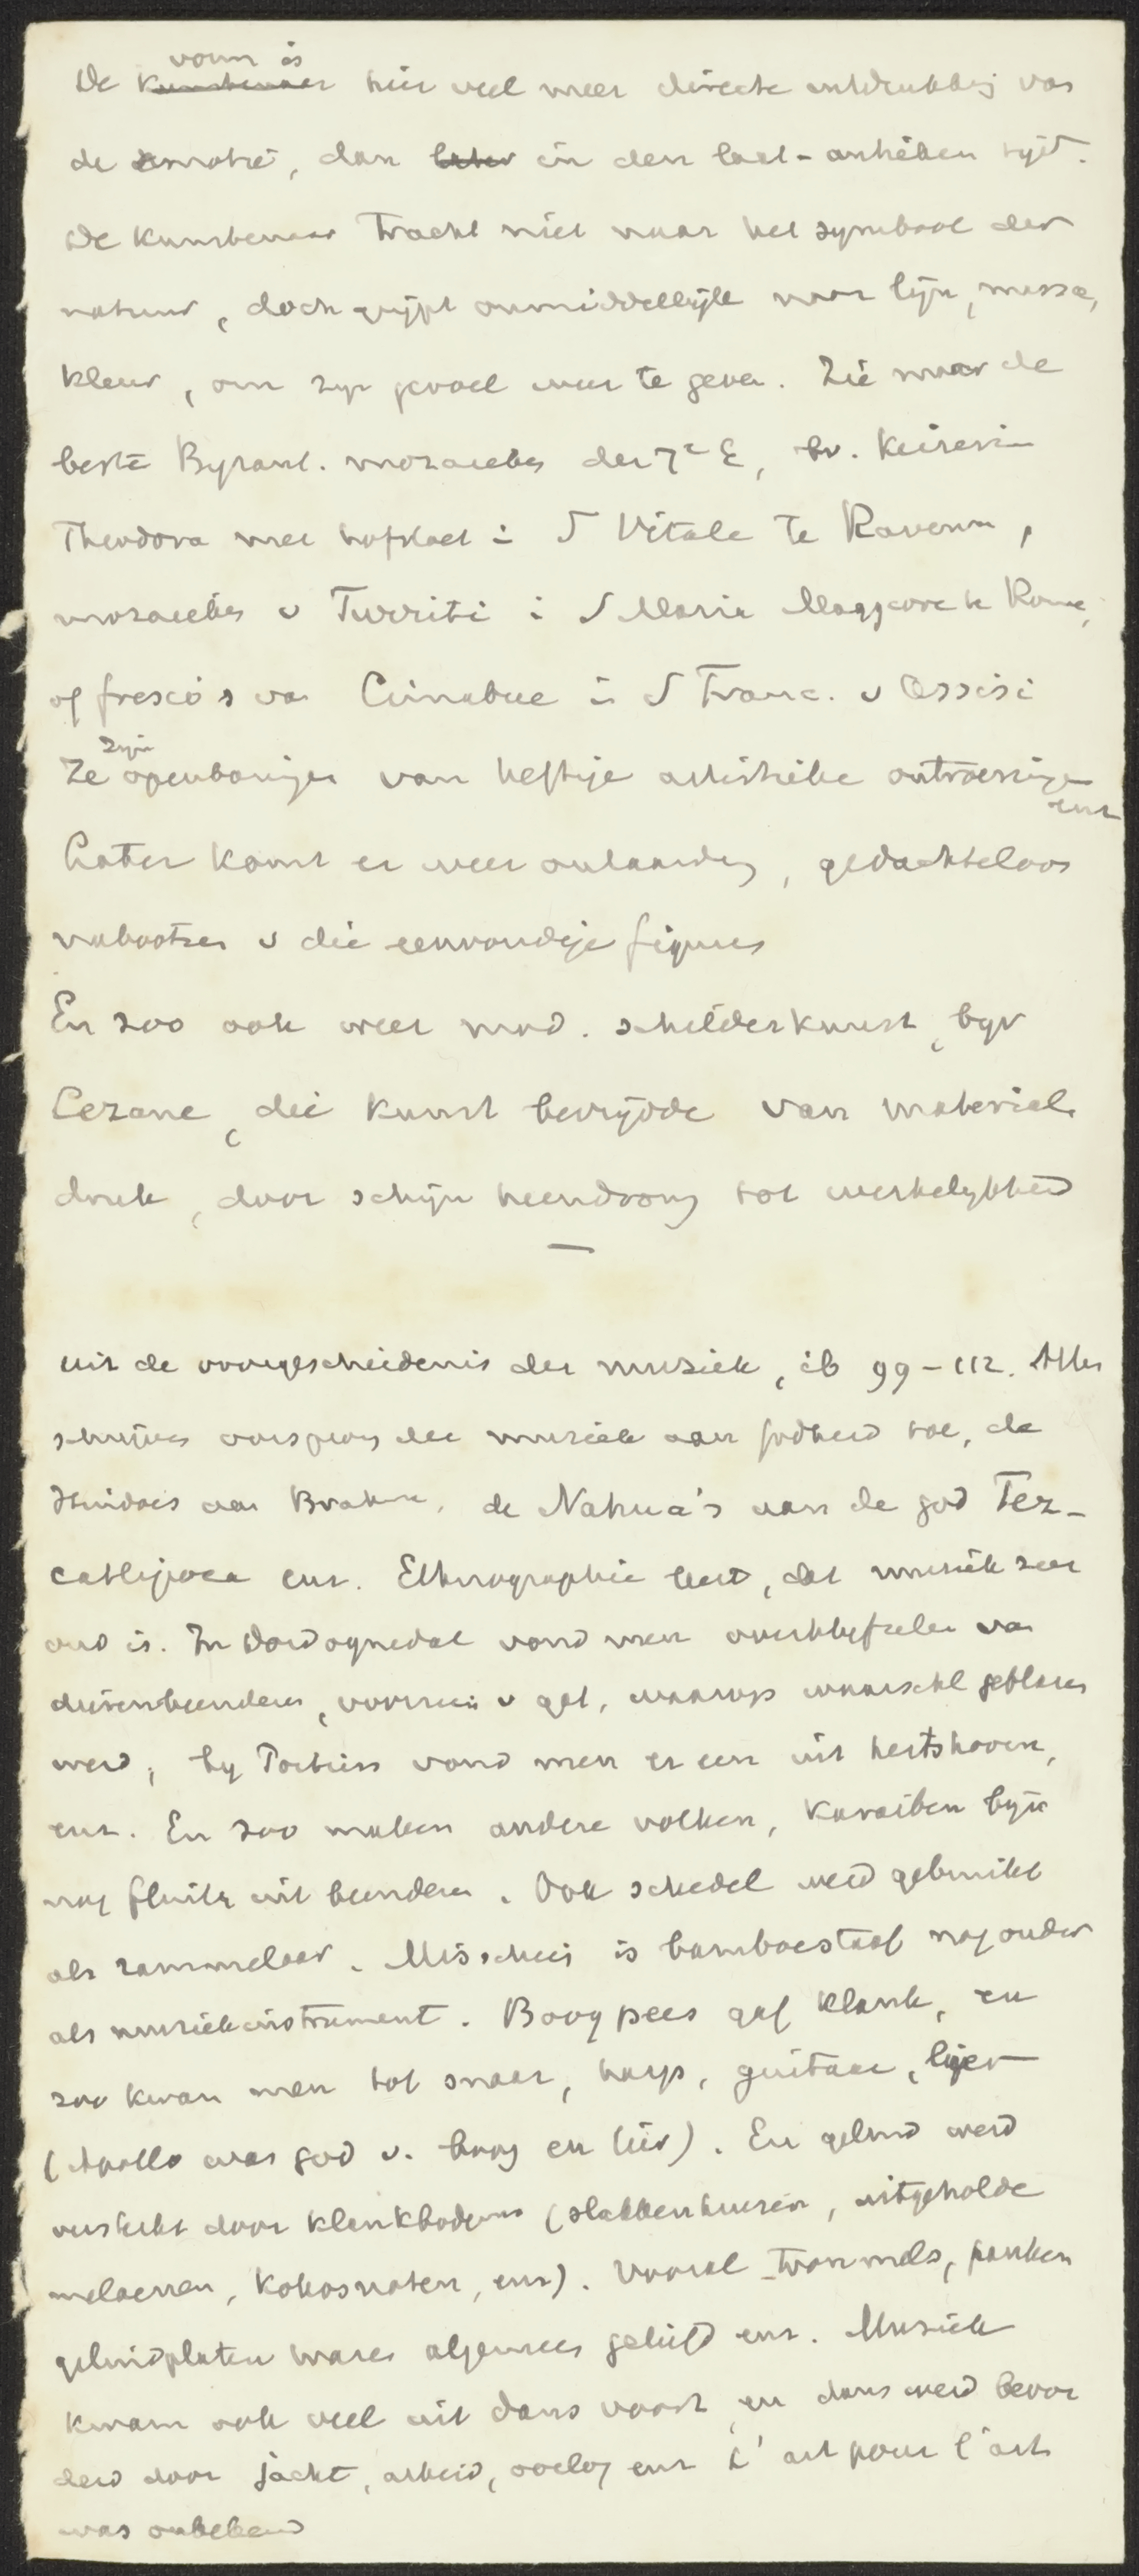 De vorm is hier veel meer directe uitdrukking van
de emotie, dan in den laat-antieken tijd.
De kunstenaar tracht niet naar het symbool der
natuur, doch grijpt onmiddellijk naar lijn, massa,
kleur, om zijn gevoel weer te geven. Zie maar de
beste Byzant. mozaieken der 7e E, bv. Keizerin
Theodora met hofstoet in S Vitale te Ravenna,
mozaieken v Turriti in S Maria Maggiore te Rome,
of fresco's van Cimabue in S Franc. v Assisi
Ze zijn openbaringen van heftige artistieke ontroeringen
enz
Later komt er weer ontaarding, gedachteloos
nabootsen v die eenvoudige figuren
En zoo ook weer mod. schilderkunst, bijv
Cezane, die kunst bevrijdde van materieele
druk, door schijn heendrong tot werkelijkheid
—
Uit de voorgeschiedenis der muziek, ib 99-112. Allen
schrijven oorsprong der muziek aan godheid toe, de
Hindoes aan Brahma, de Nahua's aan de god Tez-
catlipoca enz. Ethnographie leert, dat muziek zeer
oud is. In Dordognedal vond men
dierenbeenderen, voorzien v gat, waarop waarschl geblazen
werd, bij Poitiers vond men er een uit hertshoorn,
enz. En zoo maken andere volken, Karaiben bijv
nog fluiten uit beenderen. Ook schedel werd gebruikt
als rammelaar. Misschien is bamboestaaf nog ouder
als muziekinstrument. Boogpees gaf klank, en
zoo kwam men tot snaar, harp, guitaar, lier
(Apollo was god v. boog en lier). En geluid werd
versterkt door klankbodems (slakkenhuizen, uitgeholde
meloenen, kokosnoten, enz). Vooral trommels, pauken
geluidplaten waren algemeen geliefd enz. Muziek
kwam ook veel uit dans voort, en dans werd bevor
derd door jacht, arbeid, oorlog enz L'art pour l'art
was onbekend